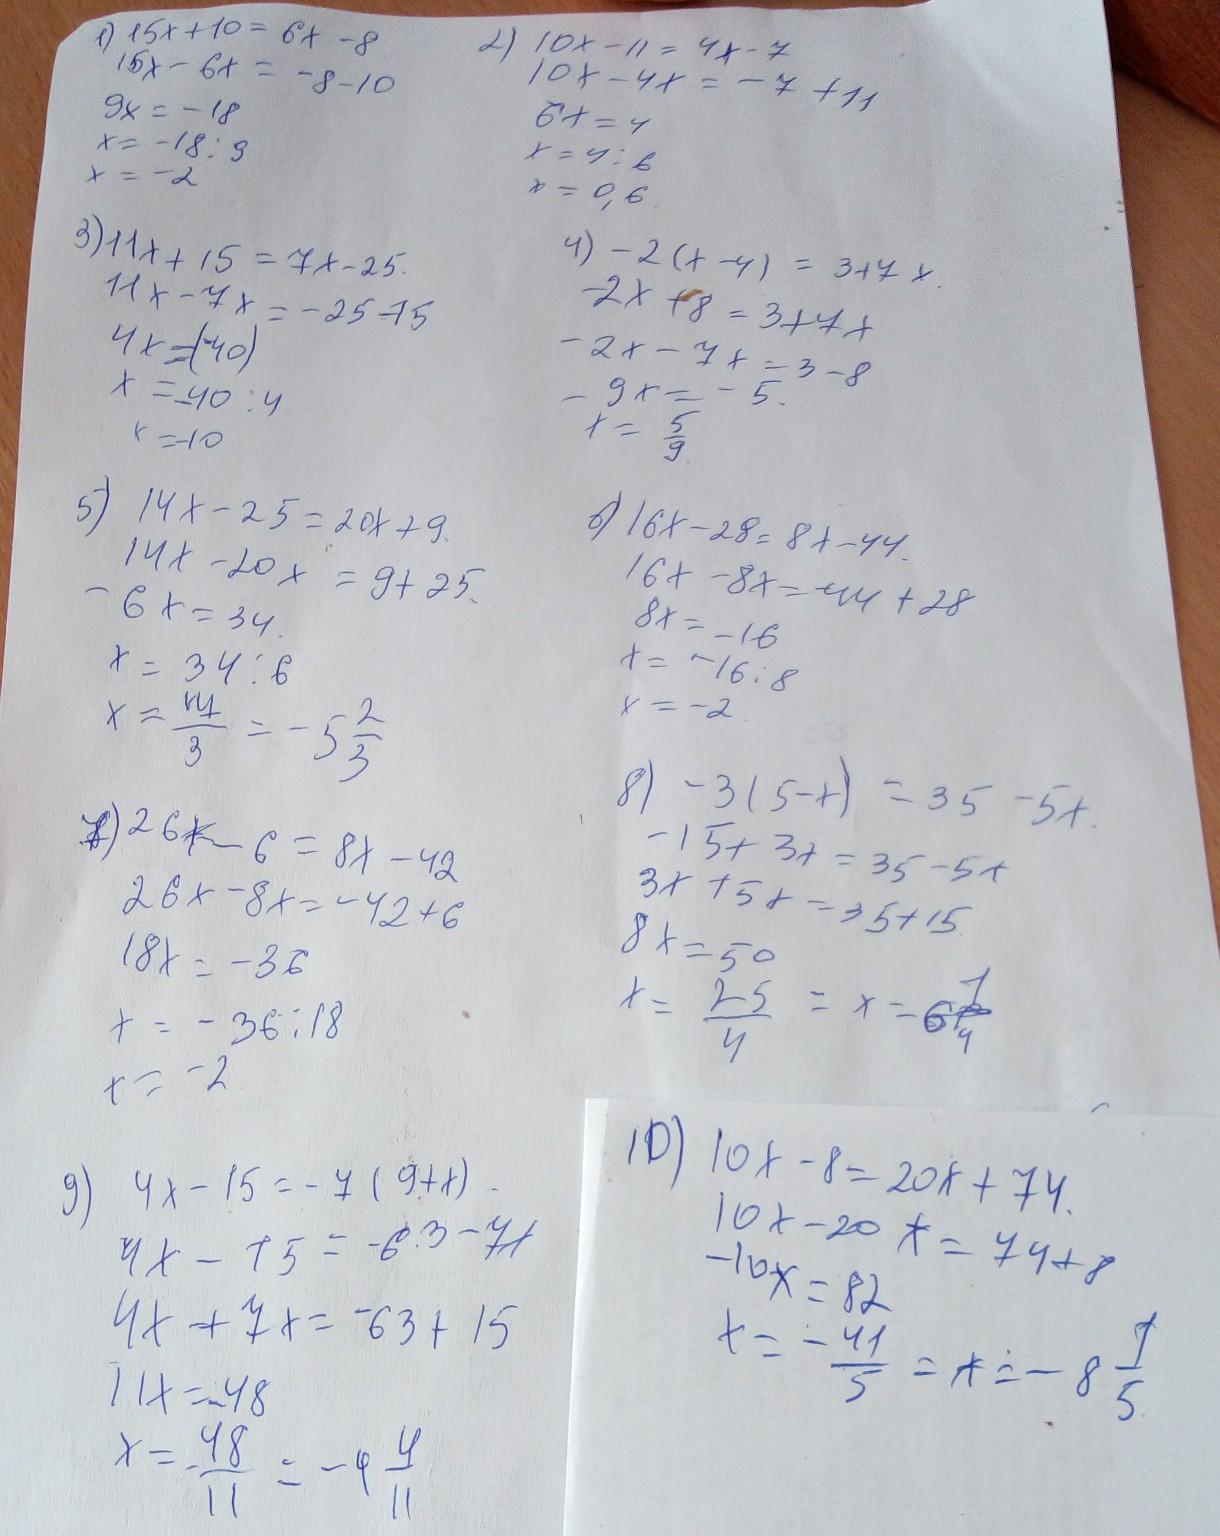 1) 15x+10 = 6x -8
15x - 6x = -8-10
9x = -18
x = -18:9
x = -2
2) 10x-11 = 4x-7
10x-4x = -7+11
6x = 4
x = 4:6
x = 0,6
3) 11x+15 = 7x-25.
11x-7x = -25-15
4x = (-40)
x = -40:4
x = -10
4) -2(x-4) = 3+7x.
-2x+8 = 3+7x
-2x-7x = 3-8
-9x = -5.
x = 5/9
5) 14x-25 = 20x+9.
14x-20x = 9+25.
-6x = 34.
x = 34:6
x = 17/3 = -5 2/3
6) 16x-28 = 8x-44.
16x-8x = -44+28
8x = -16
x = -16:8
x = -2
7) 26x-6 = 8x-42
26x-8x = -42+6
18x = -36
x = -36:18
x = -2
8) -3(5-x) = 35-5x.
-15+3x = 35-5x
3x+5x = 35+15
8x = 50
x = 25/4 = x = 6 1/4
9) 4x-15 = -7(9+x)
4x-15 = -63-7x
4x+7x = -63+15
11x = -48
x = -48/11 = -4 4/11
10) 10x-8 = 20x+74.
10x-20x = 74+8
-10x = 82
x = -41/5 = x = -8 1/5